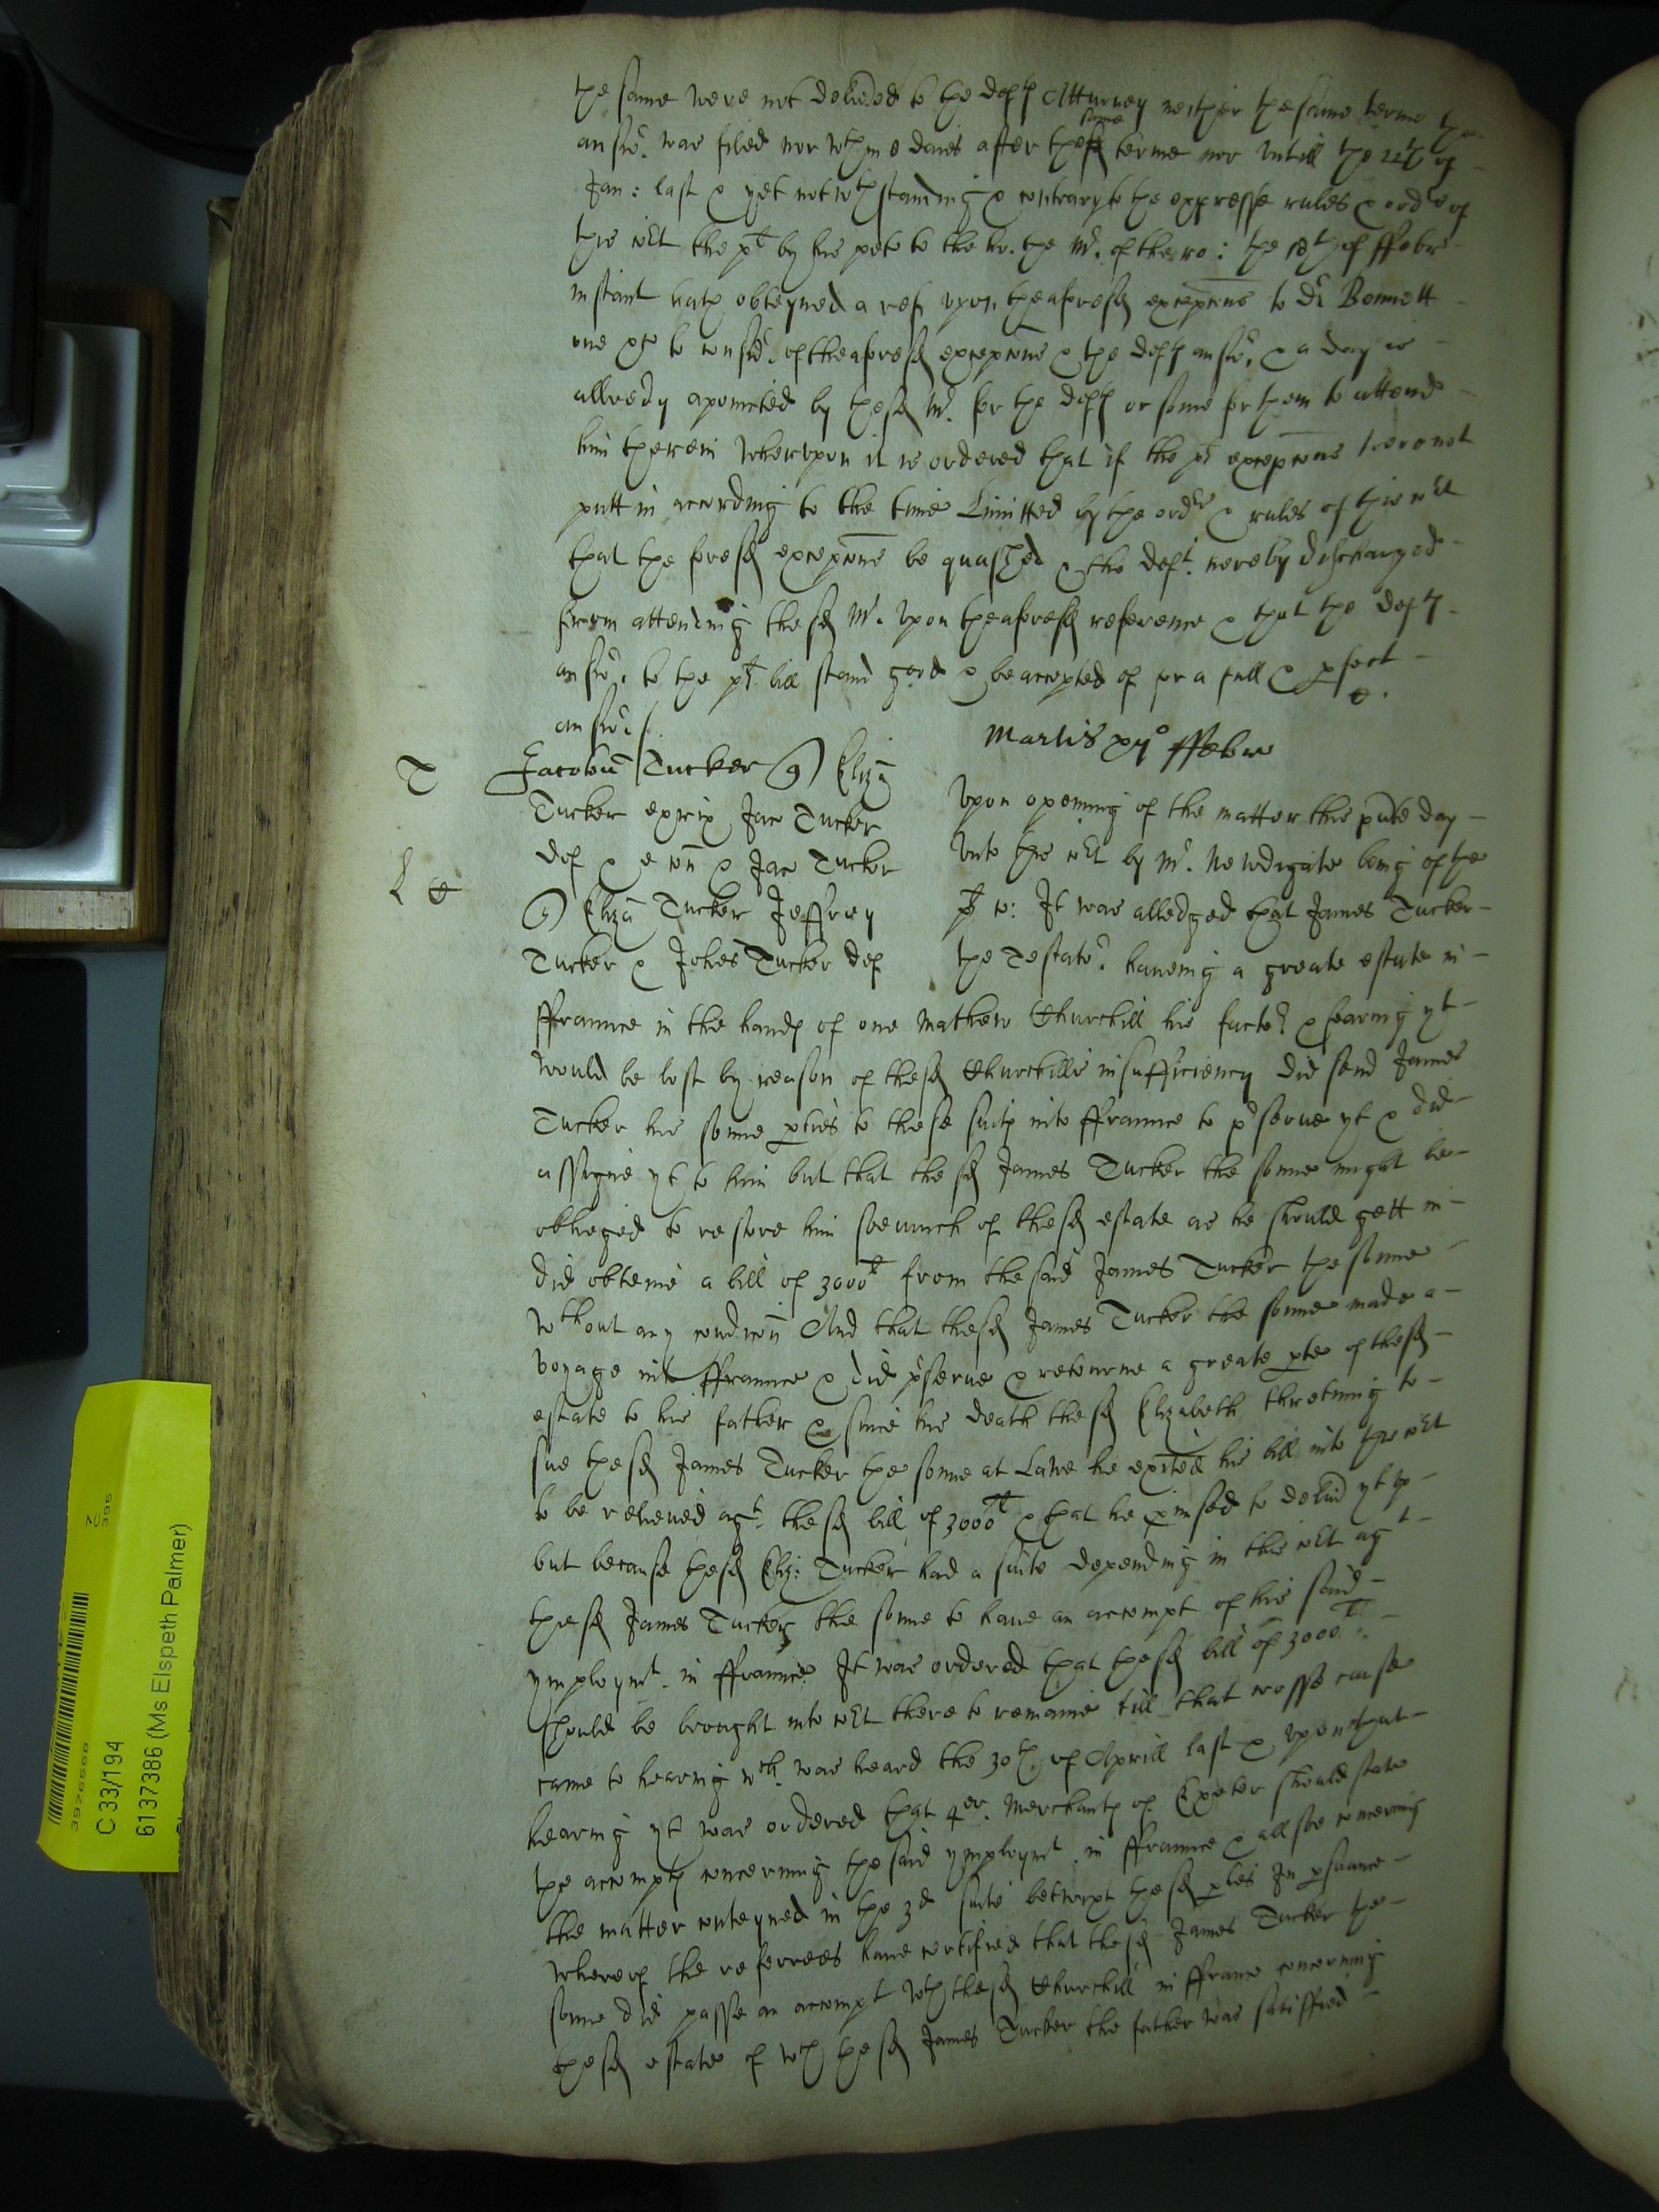 the same were not delived to the defts Atturney neither the same terme the
answ. was filed nor wthin 8 daies after the same terme nor untill the 12th of
Jan: last & yet notwthstanding & contrary to the expresse rules & ordrs of
this Cort the plt by his peto to the ho. the Mr. of the ro: the 18th of ffebr
instant hath obteyned a ref upon the aforesd excepcons to Dr Bennett
one &c to consid. of the aforesd excepcons & the defts answ. & a day is
allredy apointed by the sd Mr. for the defts or some for them to attend
him therein Wherupon it is ordered that if the plts excepcons were not
putt in according to the time Limitted by the ordrs & rules of this Cort
that the foresd excepcons be quashed & the deft. hereby discharged
from attending the sd Mr. upon the aforesd reference & that the defts
answ. to the plts bill stand good & be accepted of for a full & pfect
answr.
Martis xijo ffebr
T
Jacobu Tucker Eliza
Tucker exrix Jac Tucker
def & e con & Jac Tucker
Eliza Tucker Jeffrey
Tucker & Johes Tucker def
Upon opening of the matter this pnte day
unto this Cort by Mr. Newdigate being of the
plts C: It was alledged that James Tucker
the Testator. haveing a greate estate in
ffraunce in the hands of one Mathew Churchill his factor & fearing yt
would be lost by reason of the sd Churchills insufficiency did send James
Tucker his sonne ptie to these suits into ffraunce to pserve yt & did
assigne yt to him but that the sd James Tucker the sonne might be
obliged to restore him soe much of the sd estate as he should gett in
did obteine a bill of 3000li from the said James Tucker the sonne
wthout any condicon And that the sd James Tucker the sonne made a
voyage into ffraunce & did pserve & retourne a greate pte of the sd
estate to his father & since his death the sd Elizabeth thretning to
sue the sd James Tucker the sonne at Lawe he exited his bill into this Cort
to be releived agt. the sd bill of 3000li & that he pmised to delivd yt up
but because the sd Eliz: Tucker had a suite depending in this Cort agt
the sd James Tucker the sonne to have an accompt of his said
ymploymt. in ffraunce It was ordered that the sd bill of 3000li
should be brought into Cort there to remaine till that crosse cause
came to hearing wch. was heard the 30th. of Aprill last & upon that
hearing yt was ordered that 4er. Merchants of Exeter should state
the accompts concerning the said ymploymt. in ffraunce & allsoe concerning
the matter conteyned in the 3d suite betwixt the sd pties In psuance
whereof the referrees have certified that the sd James Tucker the
sonne did passe an accompt wth the sd Churchill in ffrance concerning
the sd estate of wch the sd James Tucker the father was satisffied
C 33/194
6137386 (Ms Elspeth Palmer)